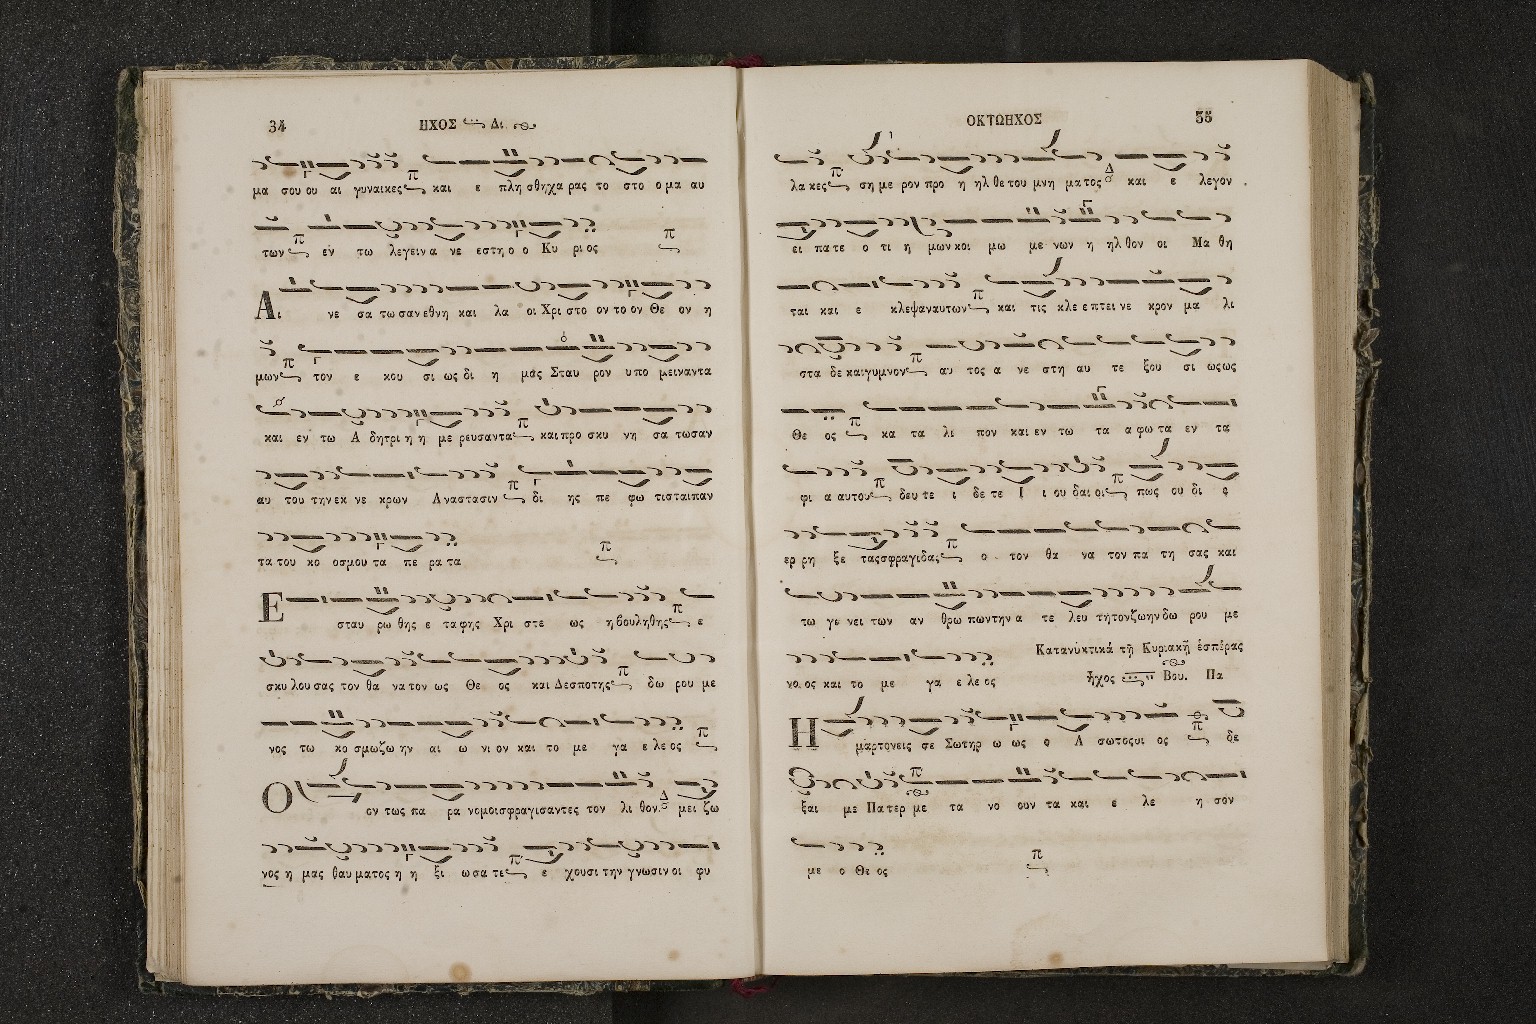 34 ΗΧΟΣ Δι
μα σου ου αι γυναικες και ε πλη σθηχα ρας το στο ομα αυ
των εν τω λεγειν α νε εστη ο ο Κυ ρι ος
Αι νε σα τωσαν εθνη και λα οι Χρι στο ον το ον Θε ον η
μων τον ε κου σι ως δι η μας Σταυ ρον υπο μειναντα
και εν τω Α δητρι η η με ρευσαντα και προ σκυ νη σα τωσαν
αυ του την εκ νε κρων Αναστασιν δι ης πε φω τισται παν
τα του κο οσμου τα πε ρα τα
Ε σταυ ρω θης ε ταφης Χρι στε ως ηβουληθης ε
σκυ λου σας τον θα να τον ως Θε ος και Δεσποτης δω ρου με
νος τω κο σμωζω ην αι ω νι ον και το με γα ε λε ος
Ο ον τως πα ρα νομοι σφραγισαντες τον λι θον μει ζω
νος η μας θαυ ματος η η ξι ωσα τε ε χουσι την γνωσιν οι φυ
ΟΚΤΩΗΧΟΣ 35
λα κες ση με ρον προ η ηλ θε του μνη ματος και ε λεγον
ει πα τε ο τι η μων κοι μω με νων η ηλ θον οι Μα θη
ται και ε κλεψαν αυτον και τις κλε επτει νε κρον μα λι
στα δε και γυμνον αυ τος α νε στη αυ τε ξου σι ως ως
Θε ος κα τα λι πον και εν τω τα α φω τα εν τα
φι α αυτου δευ τε ι δε τε Ι ι ου δαι οι πως ου δι ε
ερ ρη ξε τας σφραγιδας ο τον θα να τον πα τη σας και
τω γε νει των αν θρω πων την α τε λευ τητον ζωην δω ρου με
νο ος και το με γα ε λε ος Κατανυκτικά τῇ Κυριακῇ ἑσπέρας
ἦχος Βου. Πα
Η μαρτον εις σε Σωτηρ ω ως ο Α σωτος υι ος δε
ξαι με Πα τερ με τα νο ουν τα και ε λε η σον
με ο Θε ος